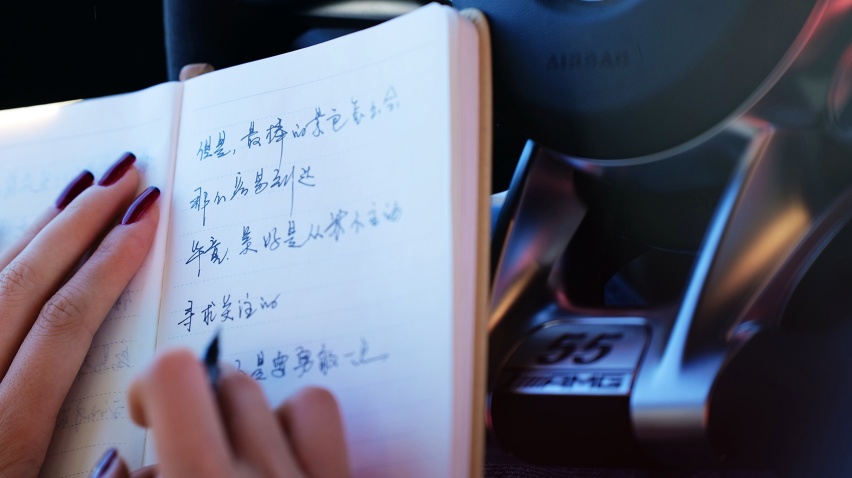 但是,最棒的景色怎么会
那么容易到达
毕竟,美好是从来不主动
寻求关注的
是要勇敢一点
AIRBAG
55
AMG